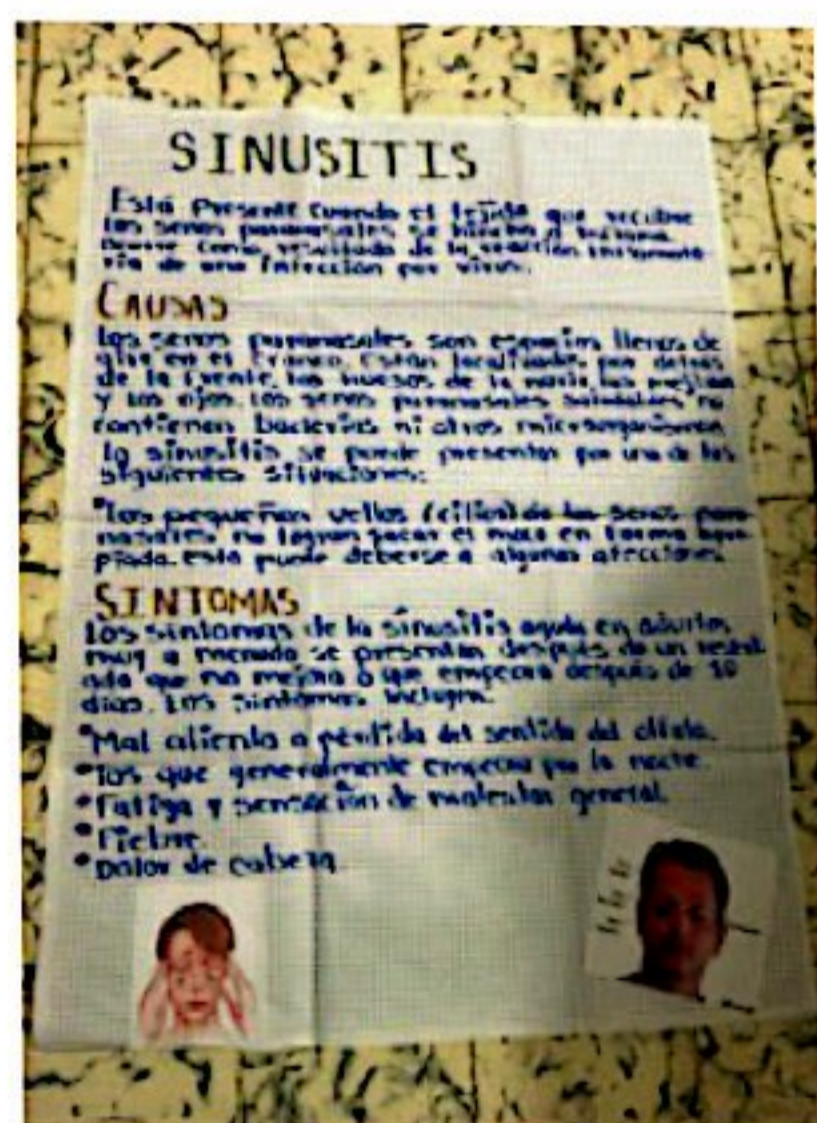 SINUSITIS
Está Presente cuando el tejido que recubre
los senos paranasales se hincha o inflama.
Ocurre como resultado de la reacción inflamato-
ria de una infección por virus.
CAUSAS
Los senos paranasales son espacios llenos de
aire en el cráneo. Están localizados por detrás
de la frente, los huesos de la nariz, las mejillas
y los ojos. Los senos paranasales saludables no
contienen bacterias ni otros microorganismos
la sinusitis se puede presentar por una de las
siguientes situaciones:
•Los pequeños vellos (cilios) de los senos para-
nasales no logran sacar el moco en forma apro-
piada. esto puede deberse a algunas afecciones
SINTOMAS
Los sintomas de la sinusitis aguda en adultos
muy a menudo se presentan después de un resfri-
ado que no mejora o que empeora después de 10
dias. Los sintomas incluyen.
•Mal aliento o pérdida del sentido del olfato.
•Tos que generalmente empeora por la noche.
•Fatiga y sensación de malestar general.
•Fiebre.
•Dolor de cabeza